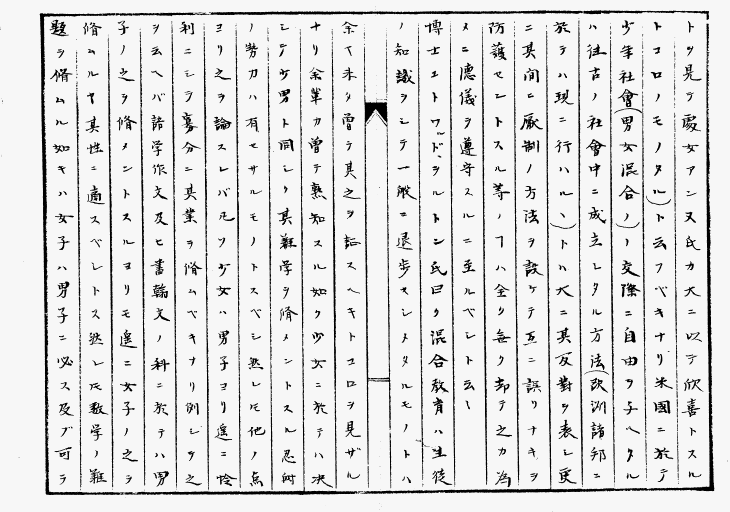 トヲ見テ處女アンヌ氏カ大ニ以テ欣喜トスル
トコロノモノタル)ト云フベキナリ米國ニ於テ
少年社會(男女混合ノ)ノ交際ニ自由ヲ与ヘタル
ハ往古ノ社會中ニ成立シタル方法(欧洲諸邦ニ
於テハ現ニ行ハルヽ)トハ大ニ其反對ヲ表シ更
ニ其間ニ厳制ノ方法ヲ設ケテ互ニ誤リナキヲ
防護セントスル等ノヿハ全ク無ク却テ之カ為
メニ德儀ヲ遵守スルニ至ルベシト云々
博士エドワルド、ヲルトン氏曰ク混合教育ハ生徒
ノ知識ヲシテ一般ニ退歩セシメタルモノトハ
余ハ未タ曽テ其之ヲ証スヘキトコロヲ見ザル
ナリ余輩カ曽テ熟知スル如ク少女ニ於テハ决
シテ少男ト同シク其難学ヲ脩メントスル忍耐
ノ勢力ハ有セザルモノトスベシ然レ𪜈他ノ点
ヨリ之ヲ論スレバ凡ソ少女ハ男子ヨリ遙ニ怜
利ニシテ募分ニ其業ヲ脩ムベキナリ例シテ之
ヲ云ヘバ諸学作文及ヒ書翰文ノ科ニ於テハ男
子ノ之ヲ脩メントスルヨリモ遙ニ女子ノ之ヲ
脩ムルヤ其性ニ適スベシトス然レ𪜈数学ノ難
題ヲ脩ムル如キハ女子ハ男子ニ必ス及ブ可ラ